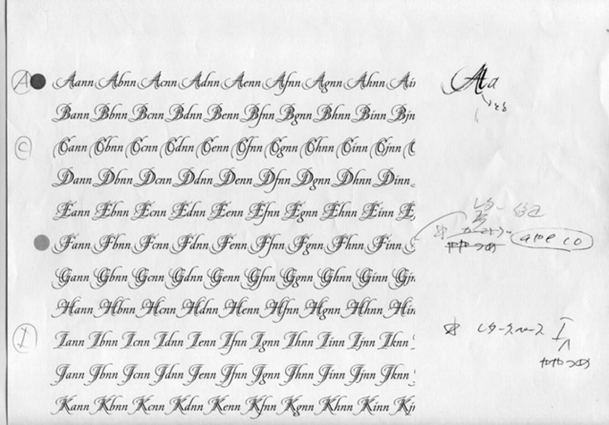 A Aann Abnn Acnn Adnn Aenn Afnn Agnn Ahnn Ain
Bann Bbnn Bcnn Bdnn Benn Bfnn Bgnn Bhnn Binn Bjn
C Cann Cbnn Ccnn Cdnn Cenn Cfnn Cgnn Chnn Cinn Cjnn C
Dann Dbnn Dcnn Ddnn Denn Dfnn Dgnn Dhnn Dinn
Eann Ebnn Ecnn Ednn Eenn Efnn Egnn Ehnn Einn E
Fann Fbnn Fcnn Fdnn Fenn Ffnn Fgnn Fhnn Finn
Gann Gbnn Gcnn Gdnn Genn Gfnn Ggnn Ghnn Ginn Gjn
Hann Hbnn Hcnn Hdnn Henn Hfnn Hgnn Hhnn Hin
I Iann Ibnn Icnn Idnn Ienn Ifnn Ignn Ihnn Iinn Ijnn Iknn
Jann Jbnn Jcnn Jdnn Jenn Jfnn Jgnn Jhnn Jinn Jjnn Jknn
Kann Kbnn Kcnn Kdnn Kenn Kfnn Kgnn Khnn Kinn Kjn
Aa
レタースペース I